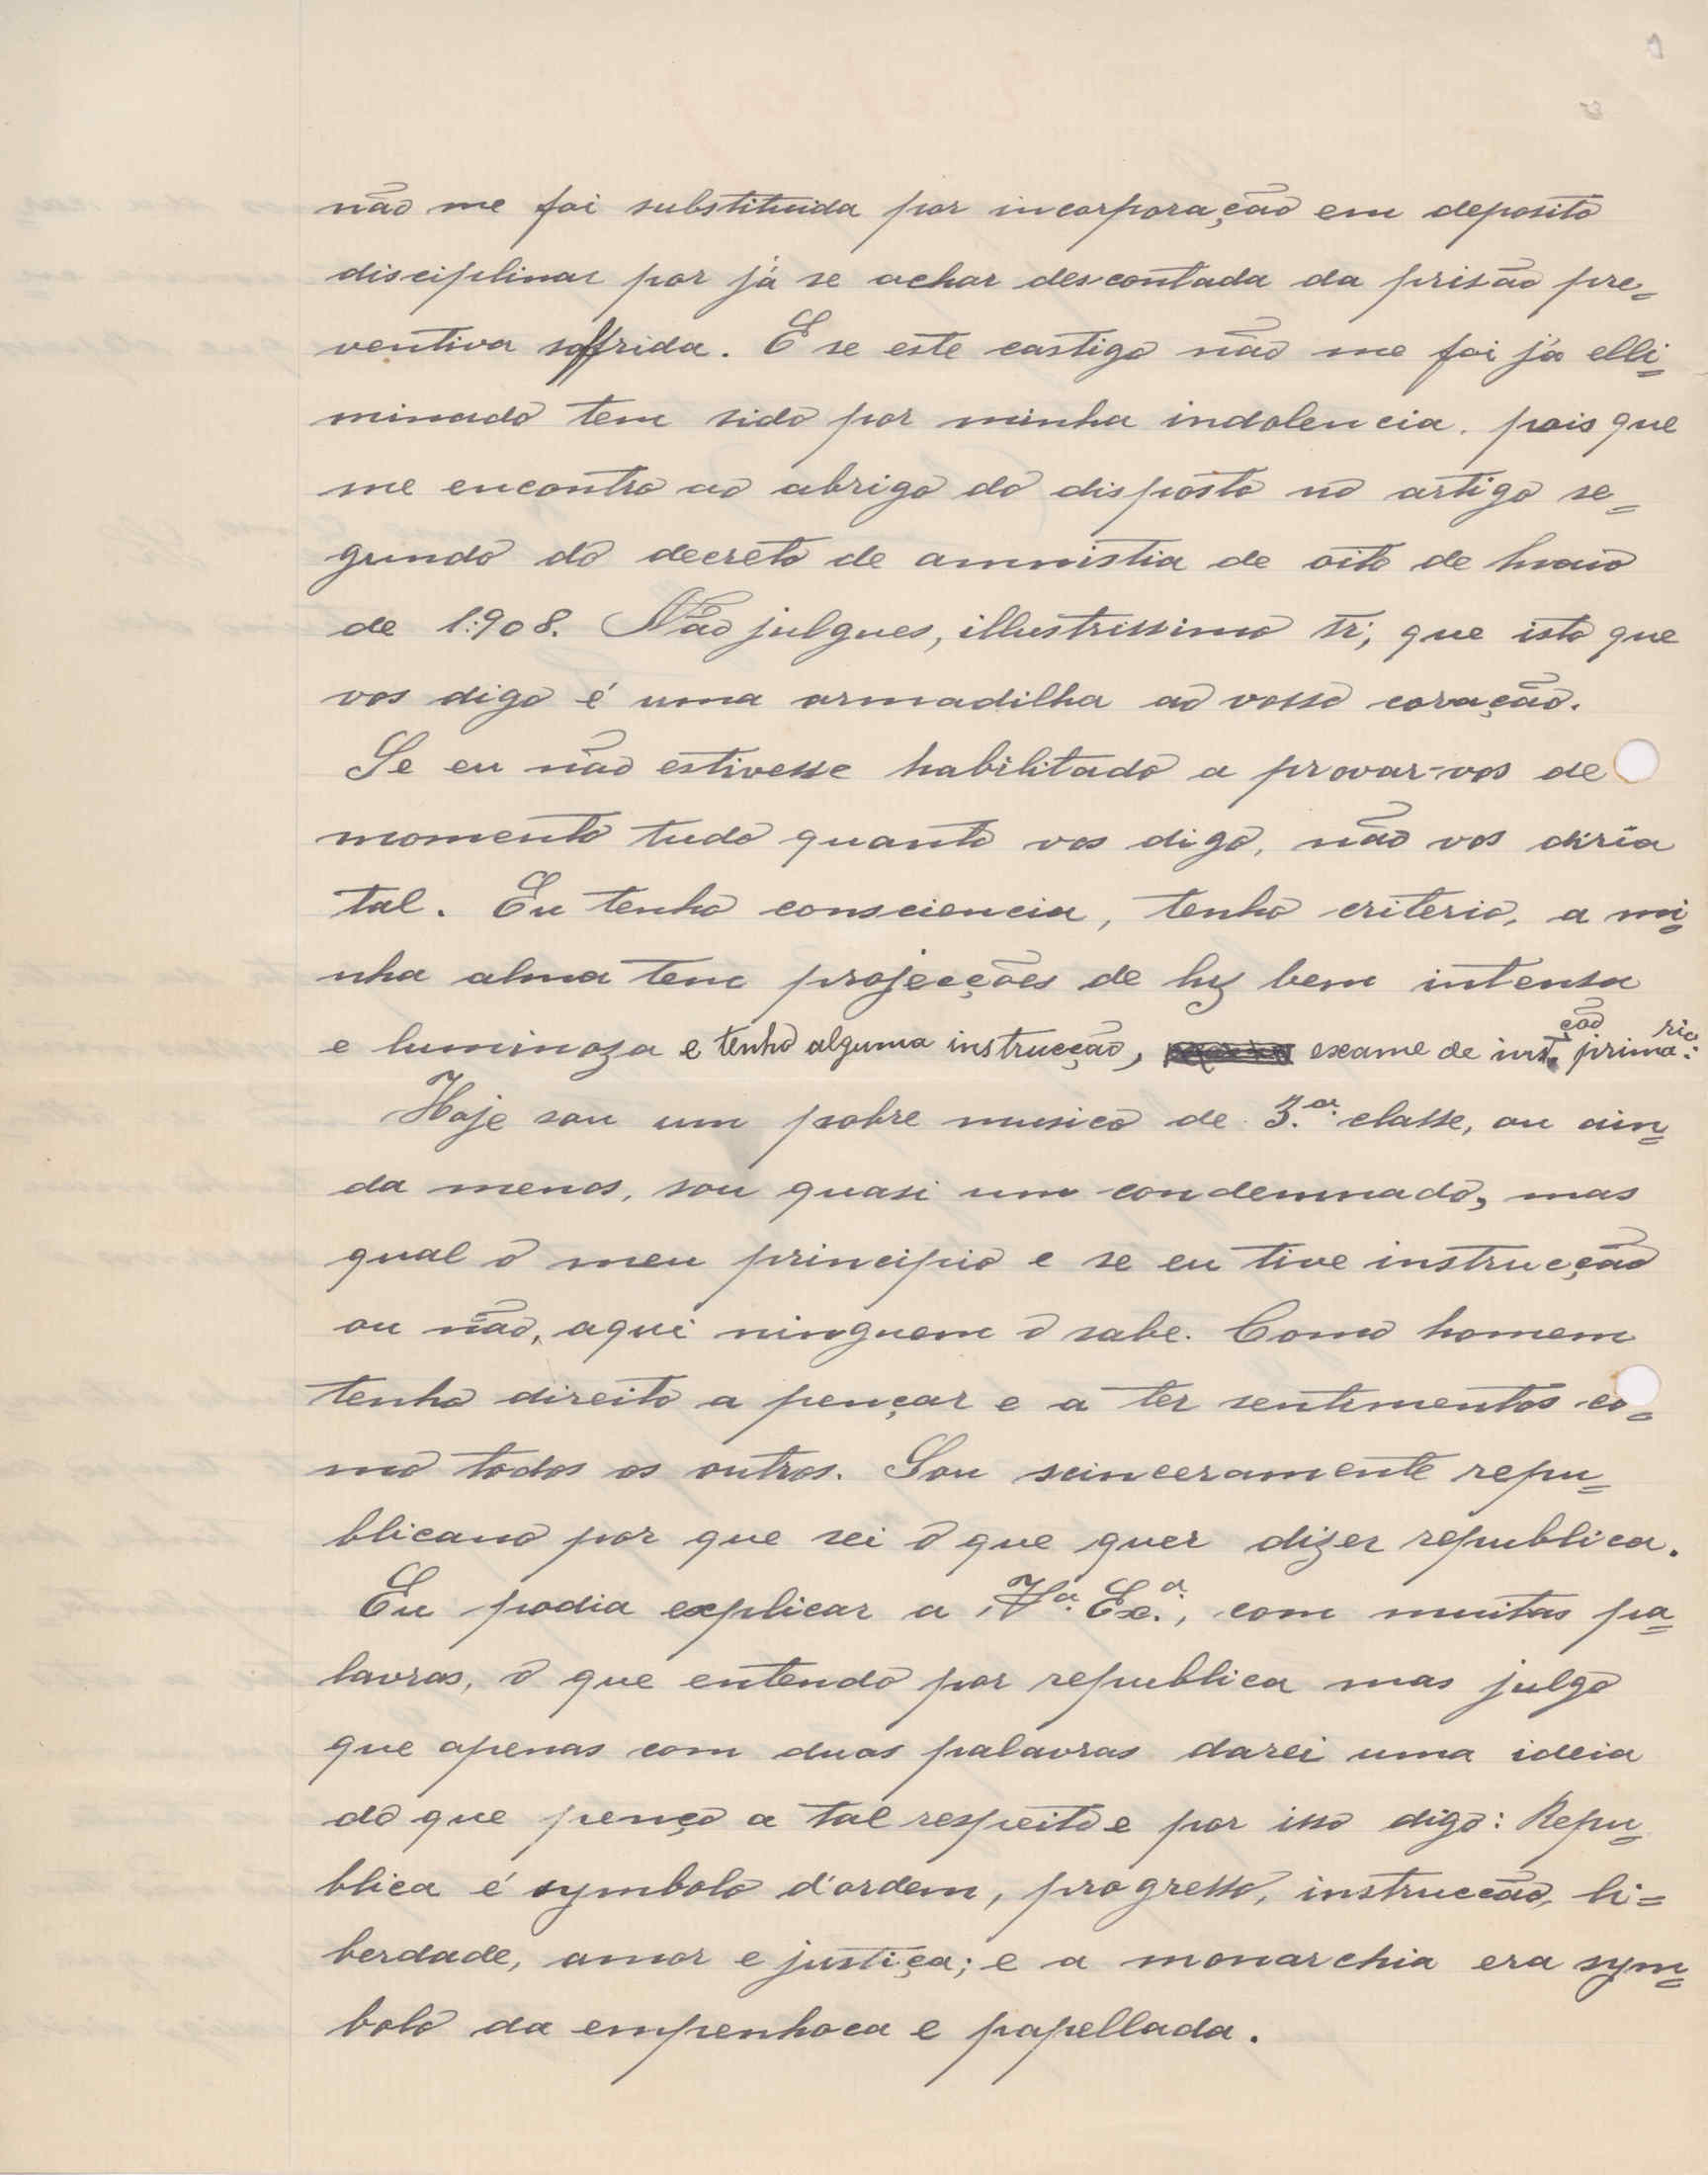 não me foi substituida por incorporação em deposito
disciplinar por já se achar descontada da prisão pre=
ventiva soffrida. E se este castigo não me foi já elli=
minado tem sido por minha indolencia, pois que
me encontro ao abrigo do disposto no artigo se=
gundo do decreto de amnistia de oito de maio
de 1:908. Não julgues, illustrissimo sr, que isto que
vos digo é uma armadilha ao vosso coração.
Se eu não estivesse habilitado a provar-vos de
momento tudo quanto vos digo, não vos diria
tal. Eu tenho consciencia, tenho criterio, a mi=
nha alma tem projecções de luz bem intensa
e luminoza e tenho alguma instrucção, exame de inst.ção primaria:
Hoje sou um pobre musico de 3.ª classe, ou ain=
da menos, sou quasi um condemnado, mas
qual o meu principio e se eu tive instrucção
ou não, aqui ninguem o sabe. Como homem
tenho direito a pençar e a ter sentimentos co=
mo todos os outros. Sou seinceramente repu=
blicano por que sei o que quer dizer republica.
Eu podia explicar a V.ª Ex.ª, com muitas pa=
lavras, o que entendo por republica mas julgo
que apenas com duas palavras darei uma ideia
do que penço a tal respeito e por isso digo: Repu=
blica é symbolo d'ordem, progresso, instrucção, li=
berdade, amor e justiça; e a monarchia era sym=
bolo da empenhoca e papellada.